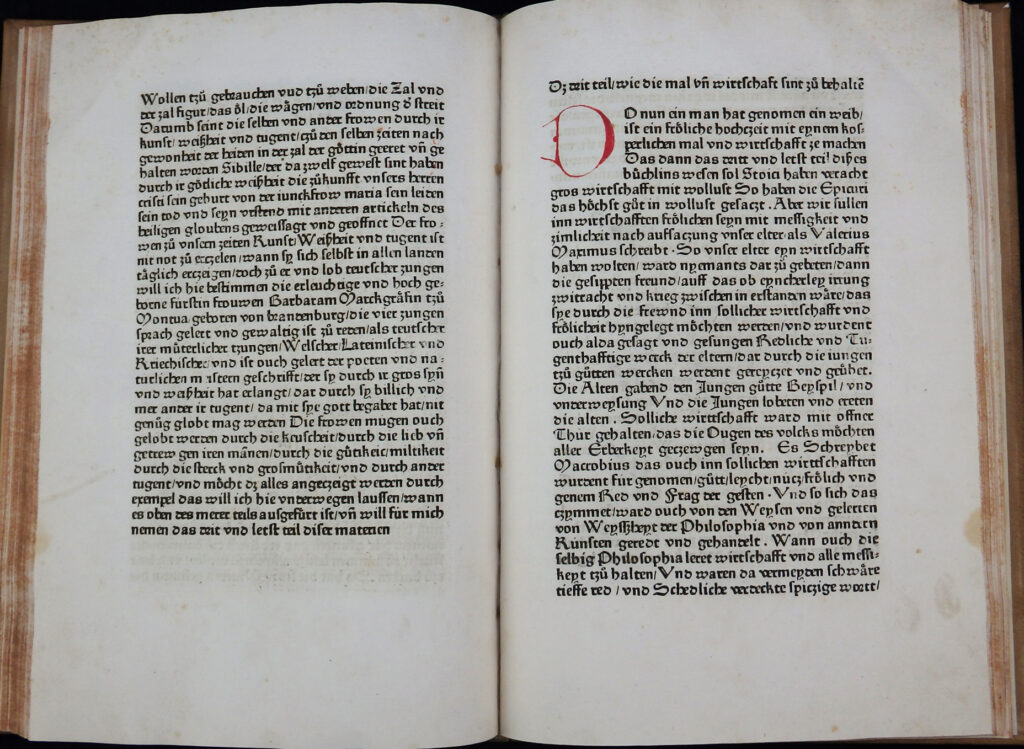 Wollen tzů gebrauchen vnd tzů weben/die Zal vnd
der zal figur/das ôl/die wågen/vnd ordnung d' streit
Darumb seint die selben vnd ander frowen durch ir
kunst/ weißheit vnd tugent/tzů den selben zeiten nach
gewonheit der heiden in der zal der göttin geeret vn̄ ge
halten worden Sibille/der da zwelf gewest sint haben
durch ir götliche weißheit die zůkunfft vnsers herren
cristi sein geburt von der iunckfrow maria sein leiden
sein tod vnd seyn vrstend mit anderen artickeln des
heiligen gloubens geweissagt vnd geoffnet Der fro-
wen zů vnsern zeiten Kunst/Weißheit vnd tugent ist
nit not zů erzelen/wann sy sich selbst in allen landen
täglich erczeigen/doch zů er vnd lob teutscher zungen
will ich hie bestimmen die erleuchtige vnd hoch ge-
borne fürstin frouwen Barbaram Marckgräfin tzů
Montua/geboren von brandenburg/die vier zungen
sprach gelert vnd gewaltig ist zů reden/als teutscher
irer můterlicher tzungen/Welscher/Lateinischer vnd
Kriechischer/vnd ist ouch gelert der poeten vnd na-
turlichen meistern geschrifft/der sy durch ir gros syn̄
vnd waßheit hat erlangt/dar durch sy billich vnd
mer ander ir tugent/da mit sye gott begabet hat/nit
genůg globt mag werden Die frowen mugen ouch
gelobt werden durch die keuscheit/durch die lieb vn̄
getrew gen iren mānen/durch die gůtikeit/miltikeit
durch die sterck vnd grosmůtikeit/vnd durch ander
tugent/vnd möcht dz alles angezeigt werden durch
exempel das will ich hie vnderwegen laussen/wann
es oben des merer teils ausgefürt ist/vn̄ will für mich
nemen das drit vnd letst teil diser materien
Dz drit teil/wie die mal vn̄ wirtschaft sint zů behaltē
DO nun ein man hat genomen ein weib/
ist ein fröliche hochzeit mit eynem kos-
perlichen mal vnd wirtschafft ze machen
Das dann das dritt vnd letst teil dißes
bůchlins wesen sol Stoici haben veracht
gros wirtschafft mit wollust So haben die Epicuri
das höchst gůt in wollust gesaczt. Aber wir sullen
inn wirtschafften frölichen seyn mit messigkeit vnd
zimlicheit nach auffsaczung vnser elter/als Valerius
Maximus schreibt. So vnser elter eyn wirtschafft
haben wolten/ ward nyemants dar zů gebeten/dann
die gesippten freund/auff das ob eyncherley irrung
zwitracht vnd krieg zwischen in erstanden wåre/das
sye durch die frewnd inn sollicher wirtschafft vnd
frölicheit hyngelegt möchten werden/vnd wurdent
ouch alda gesagt vnd gesungen Redliche vnd Tu-
genthafftige werck der eltern/dar durch die iungen
tzů gůtten wercken werdent gereyczet vnd geůbet.
Die Alten gabend den Jungen gůtte Beyspil/ vnd
vnderweysung Vnd die Jungen lobeten vnd ereten
die alten. Solliche wirtschafft ward mit offner
Thür gehalten/das die Ougen des volcks möchten
aller Erberkeyt geczewgen seyn. Es Schreybet
Maccrobius das ouch inn sollichen wirttschafften
wurdent für genomen/gůtt/leycht/nucz frölich vnd
genem Red vnd Frag der gesten. Vnd so sich das
czymmet/ward ouch von den Weysen vnd gelerten
von Weyszheyt der Philosophia vnd von anndern
Künsten geredt vnd gehandelt. Wann ouch die
selbig Philosophia leret wirtschafft vnd alle messi-
keyt tzů halten/ Vnd waren da vermeyden schwåre
tieffe red / vnd Schedliche verdeckte spiczige wortt/